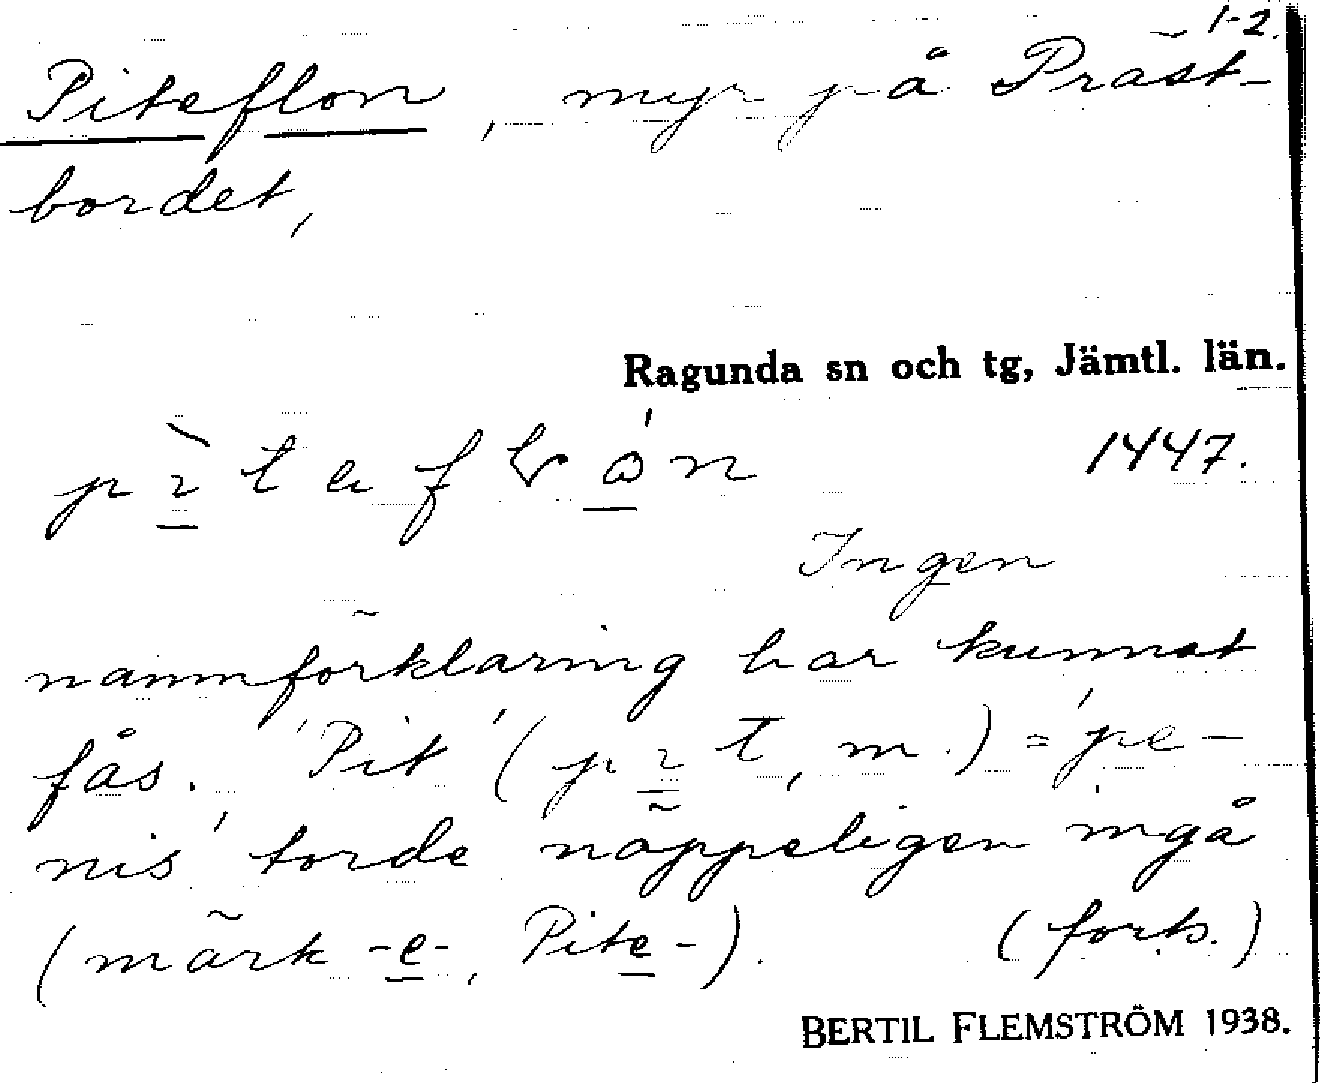 1-2.
Piteflon, myr på Präst-
bordet,
Ragunda sn och tg, Jämtl. län.
1447.
Ingen
namnförklaring har kunnat
fås. 'Pit' (pit, m.) = 'pe-
nis' torde näppeligen ingå
(märk -e-, Pite-). (forts.)
BERTIL FLEMSTRÖM 1938.